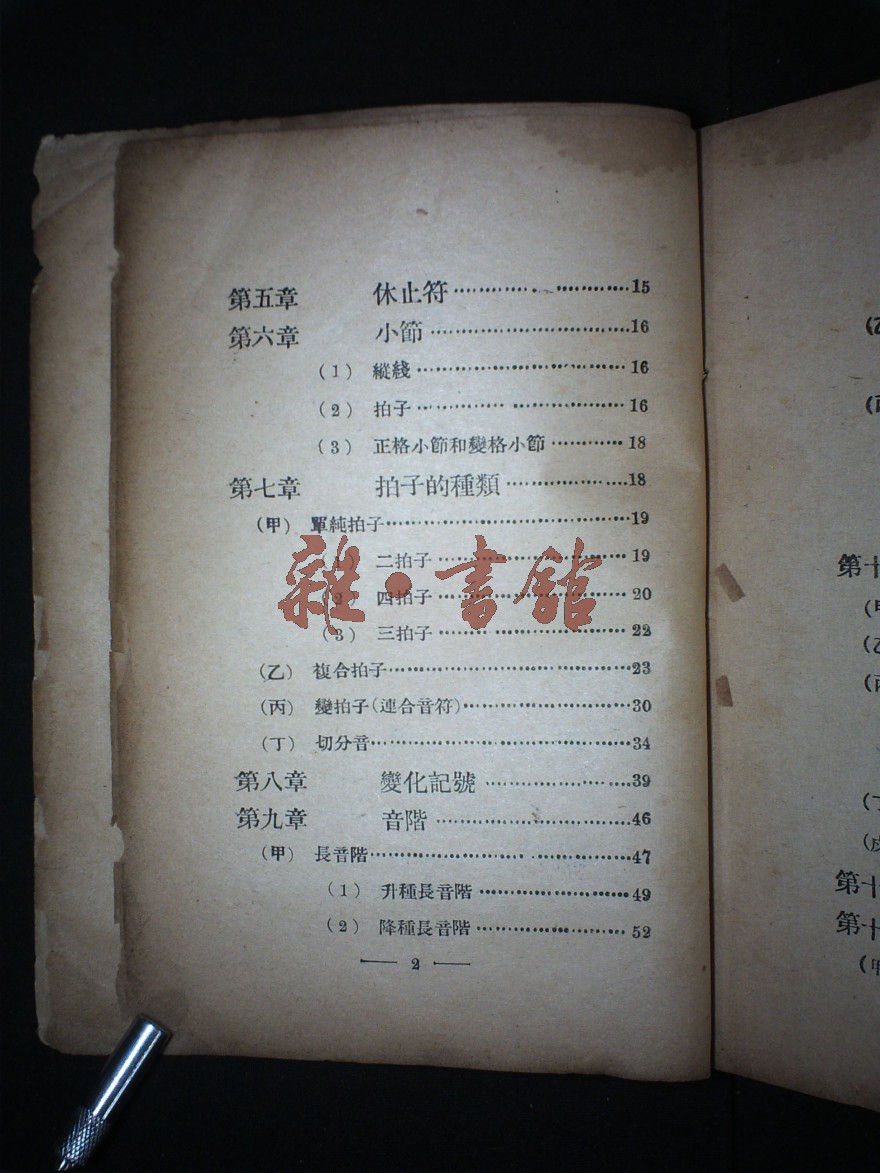 第五章 休止符 15
第六章 小節 16
(1) 縱綫 16
(2) 拍子 16
(3) 正格小節和變格小節 18
第七章 拍子的種類 18
(甲) 單純拍子 19
(1) 二拍子 19
(2) 四拍子 20
(3) 三拍子 22
(乙) 複合拍子 23
(丙) 變拍子(連合音符) 30
(丁) 切分音 34
第八章 變化記號 39
第九章 音階 46
(甲) 長音階 47
(1) 升種長音階 49
(2) 降種長音階 52
2
雜·書館
(乙
(丙
第十
(甲
(乙
(丙
(丁
(戊
第十
第十
(甲